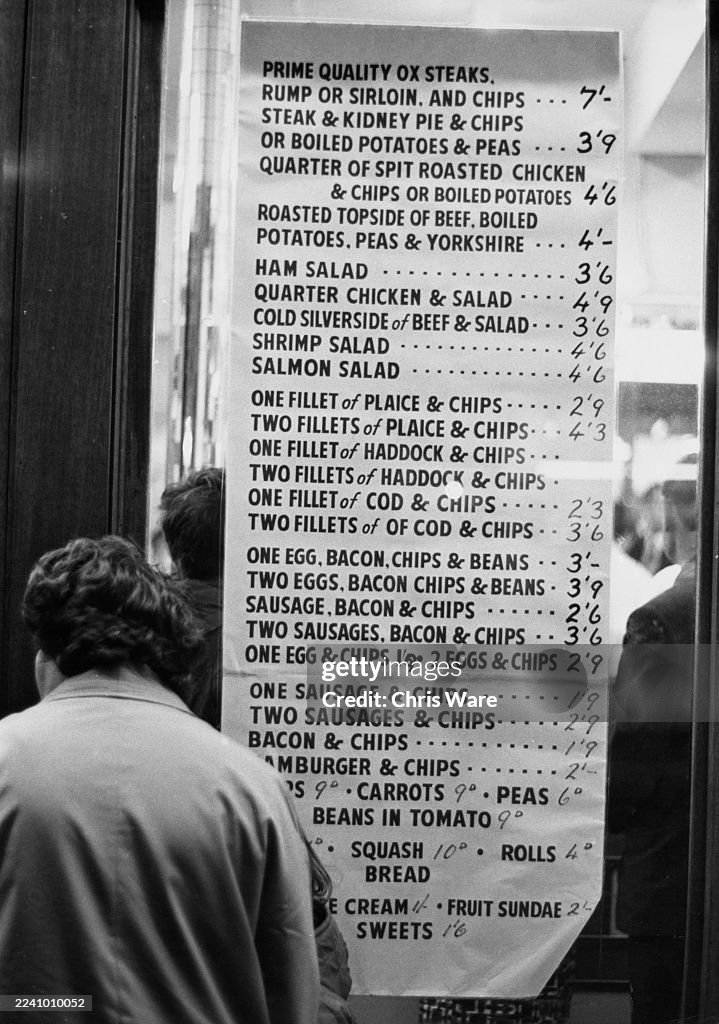 PRIME QUALITY OX STEAKS,
RUMP OR SIRLOIN, AND CHIPS ... 7'-
STEAK & KIDNEY PIE & CHIPS
OR BOILED POTATOES & PEAS ... 3'9
QUARTER OF SPIT ROASTED CHICKEN
& CHIPS OR BOILED POTATOES 4'6
ROASTED TOPSIDE OF BEEF, BOILED
POTATOES, PEAS & YORKSHIRE ... 4'-
HAM SALAD ............. 3'6
QUARTER CHICKEN & SALAD .... 4'9
COLD SILVERSIDE of BEEF & SALAD ... 3'6
SHRIMP SALAD ........... 4'6
SALMON SALAD .......... 4'6
ONE FILLET of PLAICE & CHIPS ..... 2'9
TWO FILLETS of PLAICE & CHIPS ... 4'3
ONE FILLET of HADDOCK & CHIPS ...
TWO FILLETS of HADDOCK & CHIPS .
ONE FILLET of COD & CHIPS ..... 2'3
TWO FILLETS of OF COD & CHIPS ... 3'6
ONE EGG, BACON, CHIPS & BEANS .. 3'-
TWO EGGS, BACON CHIPS & BEANS . 3'9
SAUSAGE, BACON & CHIPS ...... 2'6
TWO SAUSAGES, BACON & CHIPS .. 3'6
ONE EGG & CHIPS 2 EGGS & CHIPS 2'9
ONE SAUSAGE & CHIPS 1'9
TWO SAUSAGES & CHIPS ..... 2'9
BACON & CHIPS ........... 1'9
HAMBURGER & CHIPS ....... 2'-
9ᴰ · CARROTS 9ᴰ · PEAS 6ᴰ
BEANS IN TOMATO 9ᴰ
· SQUASH 10ᴰ · ROLLS 4ᴰ
BREAD
CREAM 1/- · FRUIT SUNDAE 2'-
SWEETS 1'6
gettyimages
Chris Ware
2241010052